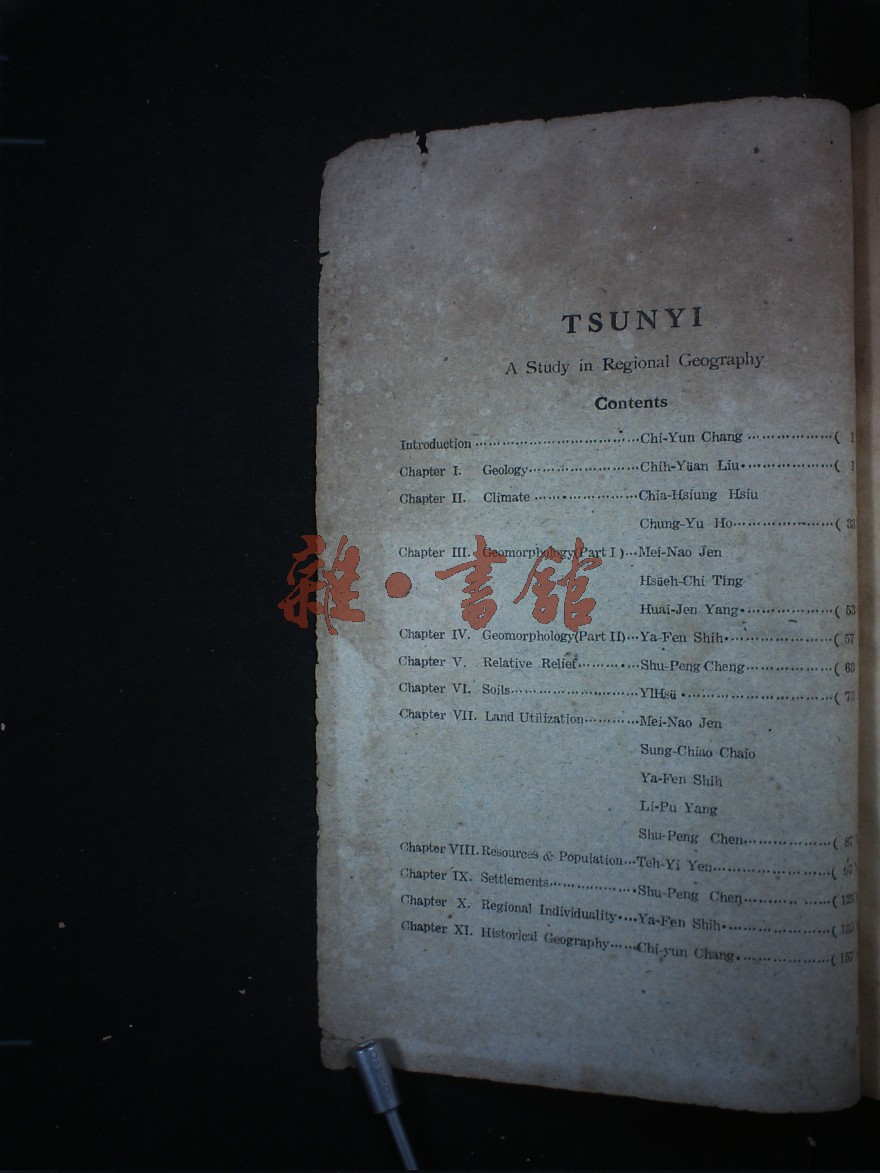 TSUNYI
A Study in Regional Geography
Contents
Introduction ·································Chi-Yun Chang ·················( 1
Chapter I. Geology······················Chih-Yüan Liu··················( 1
Chapter II. Climate ·····················Chia-Hsiung Hsiu
Chung-Yu Ho····················( 33
Chapter III. Geomorphology(Part I )···Mei-Nao Jen
Hsüeh-Chi Ting
Huai-Jen Yang··················( 53
Chapter IV. Geomorphology(Part II)···Ya-Fen Shih·····················( 57
Chapter V. Relative Relief············Shu-Peng Cheng·················( 63
Chapter VI. Soils·························YiHsü ·····························( 73
Chapter VII. Land Utilization···········Mei-Nao Jen
Sung-Chiao Chaio
Ya-Fen Shih
Li-Pu Yang
Shu-Peng Chen·················( 87
Chapter VIII. Resources & Population···Teh-Yi Yen·······················(
Chapter IX. Settlements·················Shu-Peng Chen·················( 125
Chapter X. Regional Individuality····Ya-Fen Shih·····················(
Chapter XI. Historical Geography······Chi-yun Chang···················( 157
雜·書館